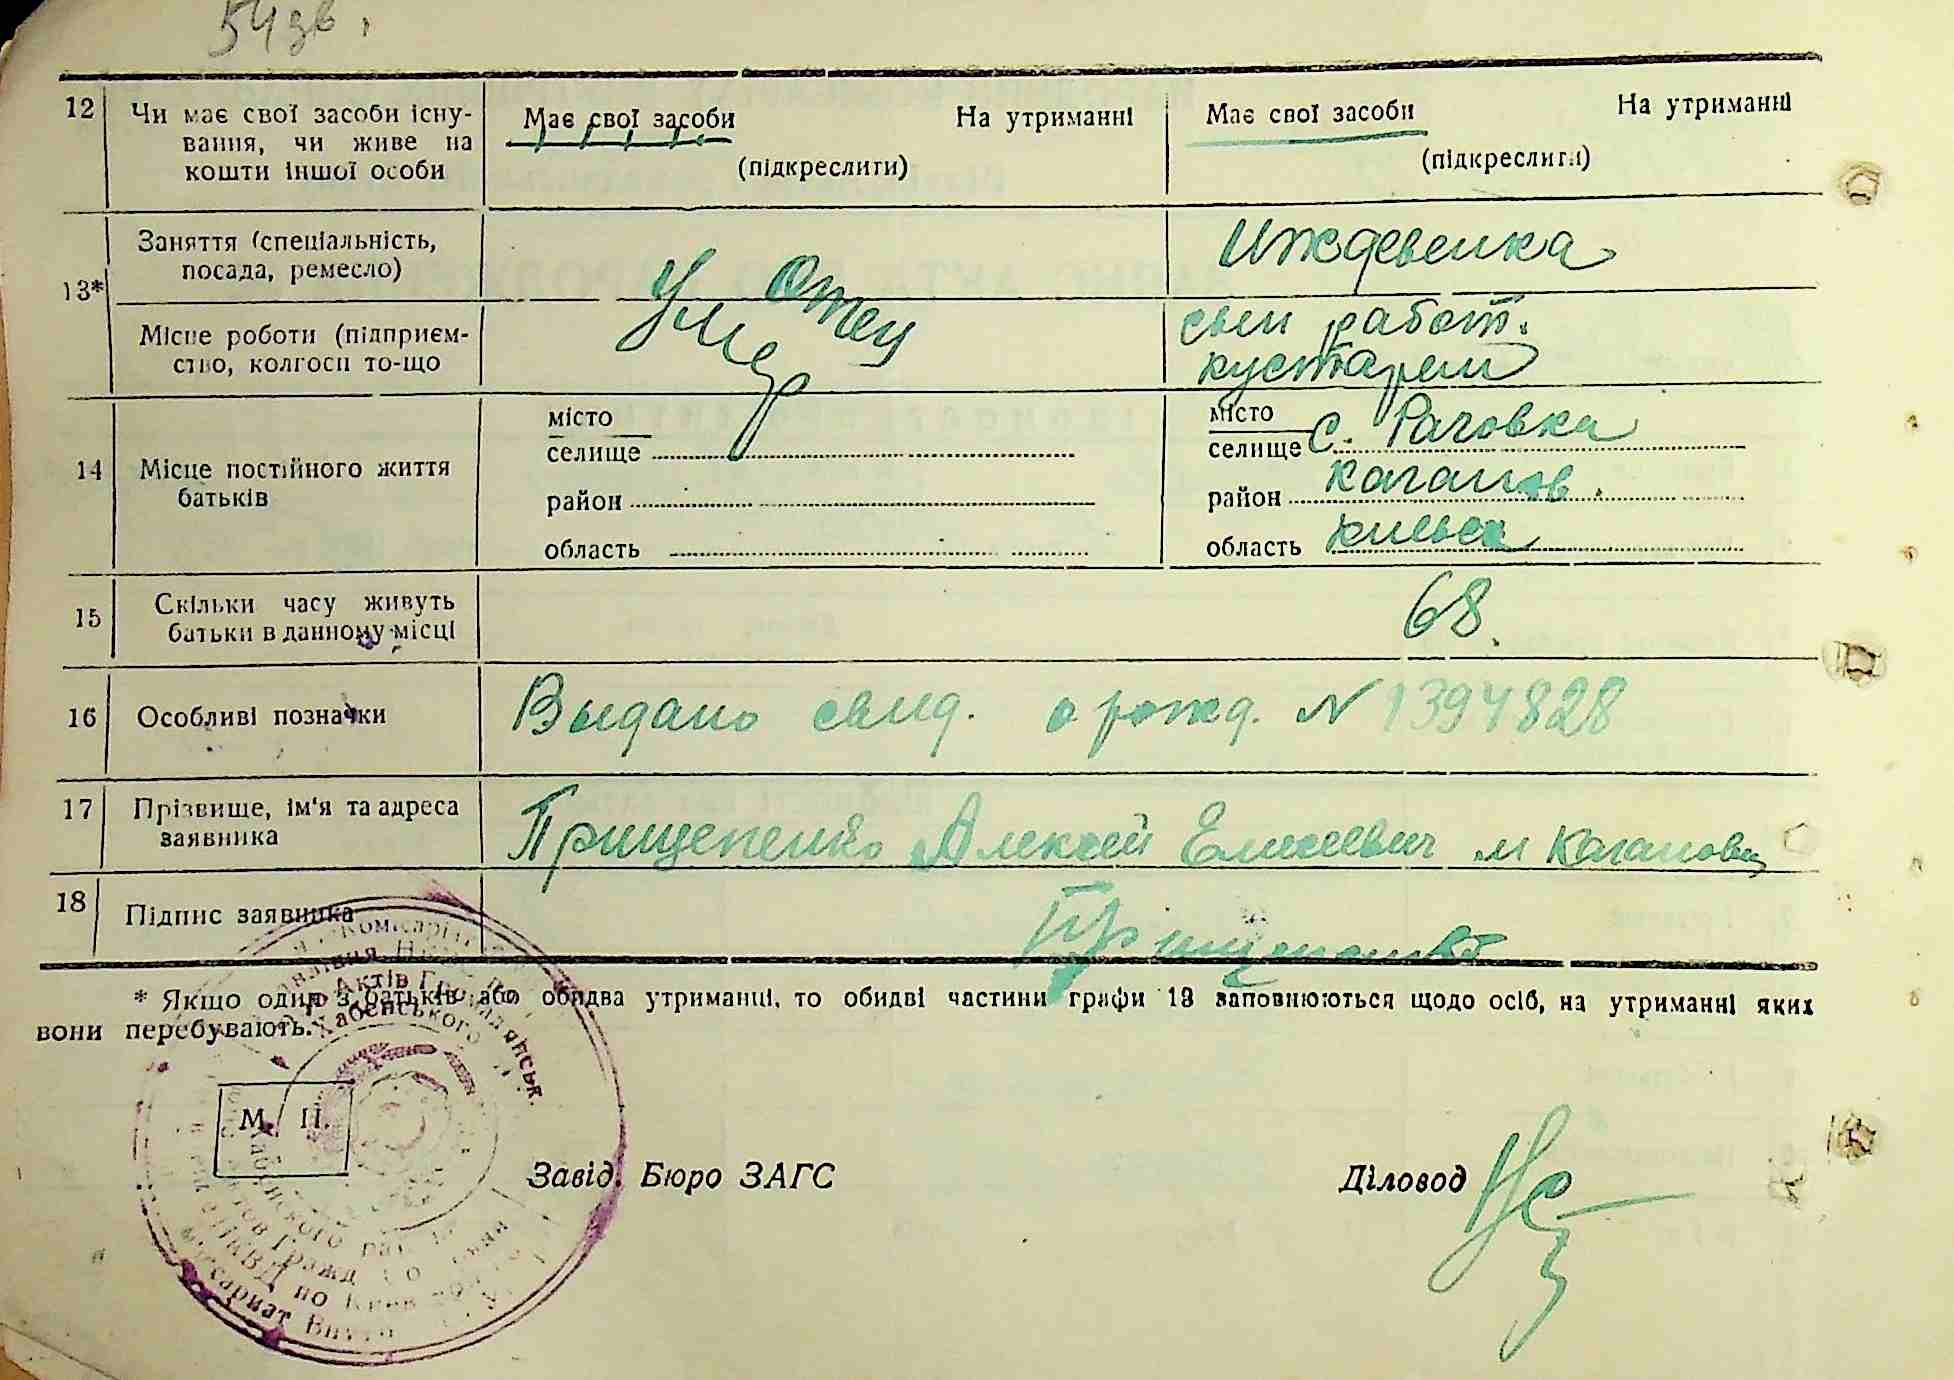 54 зв.
12 Чи має свої засоби існу- Має свої засоби На утриманні Має свої засоби На утриманні
вання, чи живе на (підкреслити) (підкреслити)
кошти іншої особи
13* Заняття (спеціальність, Отец Иждевенка
посада, ремесло) Умер
Місце роботи (підприєм- сын работ.
ство, колгосп то-що кустарем
14 Місце постійного життя місто місто
батьків селище селище с. Раговка
район район Каганов.
область область Киевск
15 Скільки часу живуть 68.
батьки в данному місці
16 Особливі позначки Выдано свид. о рожд. N 1394828
17 Прізвище, ім'я та адреса Прищепенко Алексей Елисеевич м Каганович
заявника
18 Підпис заявника Прищепенко
* Якщо один з батьків або обидва утриманці, то обидві частини графи 13 заповнюються щодо осіб, на утриманні яких
вони перебувають.
М. П.
Завід. Бюро ЗАГС Діловод
Актів Громадянськ.
Хабенського
НКВД по Киев